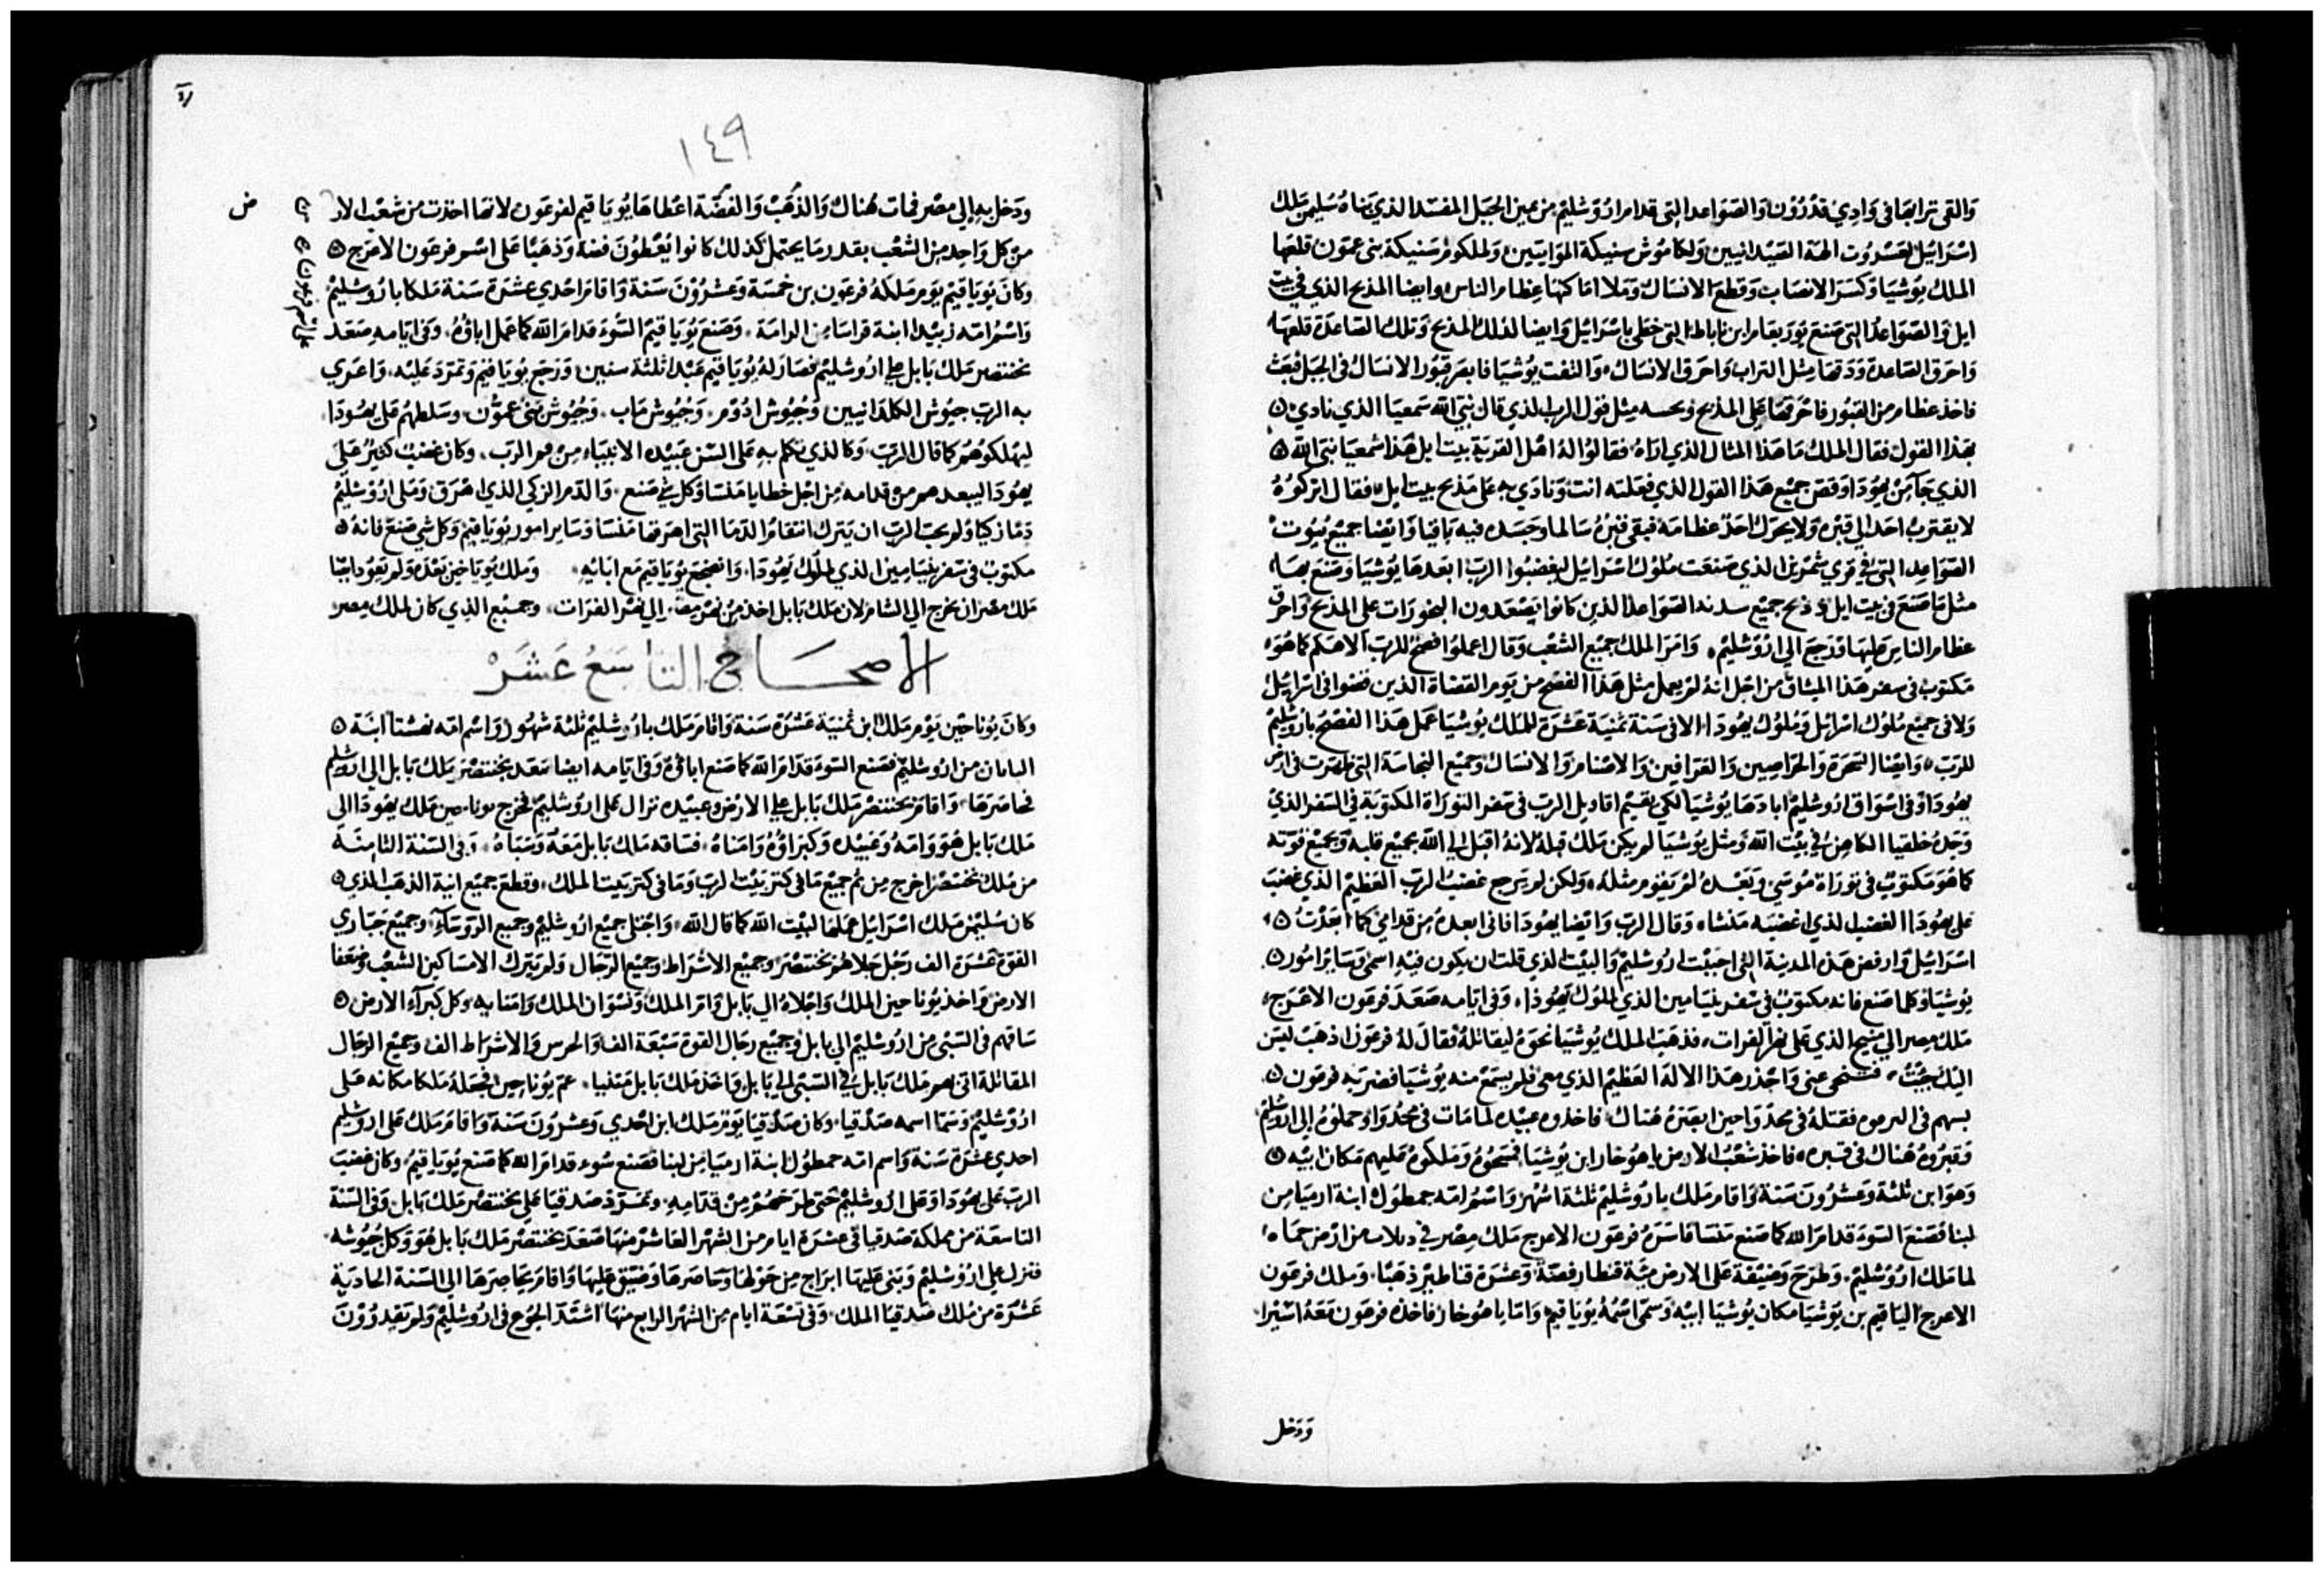 والقى ترابها فى وادي قدرون والصواعد التى قدام اروشليم من يمين الجبل المفسد الذي بناه سليمن ملك
اسرائيل لعستروت الهة الصيدانيين ولكاموش سنيكة الموابيين ولملكوم سنيكة بنى عمون قلعها
الملك يوشيا وكسر الانصاب وقطع الانساك وملا اماكنها عظام الناس وايضا المذبح الذي في بيت
ايل والصواعد التى صنع يوربعام ابن ناباط التى خطى باسرائيل وايضا لذلك المذبح وتلك الصاعدة قلعها
واحرق الصاعدة ودقها مثل التراب واحرق الانساك والتفت يوشيا فابصر قبور الانساك فى الجبل فبعث
فاخذ عظام من القبور فاحرقها على المذبح ونجسه مثل قول الرب الذي قال نبي الله شمعيا الذي نادي
بهذا القول فقال الملك ما هذا المثال الذي اراه فقالوا له اهل القرية بيت ايل هذا شمعيا نبى الله
الذي جا من يهودا وقص جميع هذا القول الذي فعلته انت ونادي به على مذبح بيت ايل فقال اتركوه
لا يقترب احد الي قبره ولا يحرك احد عظامه فبقى قبره سالما وجسده فيه باقيا وايضا جميع بيوت
الصواعد التى في قري شمرين الذي صنعت ملوك اسرائيل ليغضبوا الرب ابعدها يوشيا وصنع بها
مثل ما صنع فى بيت ايل وذبح جميع سدنة الصواعد الذين كانوا يصعدون البخورات على المذبح واحرق
عظام الناس عليها ورجع الي اروشليم وامر الملك جميع الشعب وقال اعملوا فصح للرب الاهكم كما هو
مكتوب فى سفر هذا الميثاق من اجل انه لم يعمل مثل هذا الفصح من يوم القضاة الذين قضوا فى اسرائيل
ولا فى جميع ملوك اسرائيل وملوك يهودا الا فى سنة ثمنية عشرة للملك يوشيا عمل هذا الفصح باروشليم
للرب وايضا السحرة والخراصين والعرافين والاصنام والانساك وجميع النجاسة التى ظهرت فى ارض
يهودا وفى اسواق اروشليم ابادها يوشيا لكي يقيم اقاويل الرب فى سفر التوراة المكتوبة في السفر الذي
وجده خلقيا الكاهن في بيت الله ومثل يوشيا لم يكن ملك قبله لانه اقبل الي الله بجميع قلبه وبجميع قوته
كما هو مكتوب فى توراة موسي وبعده لم يقوم مثله ولكن لم يرجع غضب الرب العظيم الذي غضب
على يهودا الغضب الذي اغضبه منشا وقال الرب وايضا يهودا فانى ابعده من قدامي كما ابعدت
اسرائيل وارفض هذه المدينة التى احببت اروشليم والبيت الذي قلت ان يكون فيه اسمي وسائر امور
يوشيا وكلما صنع فانه مكتوب في سفر بنيامين الذي لملوك يهوذا وفى ايامه صعد فرعون الاعرج
ملك مصر الي منبج الذي على نهر الفرات فذهب الملك يوشيا نحوه ليقاتله فقال له فرعون اذهب ليس
اليك جيت فتنحى عنى واحذر هذا الاله العظيم الذي معى فلم يسمع منه يوشيا فضربه فرعون
بسهم فى البرموم فقتله في مجدوا حين ابصره هناك فاخذوه عبيده لما مات فى مجدوا وحملوه الي اروشليم
وقبروه هناك فى قبره فاخذ شعب الارض ياهوخار ابن يوشيا فمسحوه وملكوه عليهم مكان ابيه
وهو ابن ثلثة وعشرون سنة واقام ملك باروشليم ثلثة اشهر واسم امه جمطول ابنة ارميا من
لبنا فصنع السوء قدام الله كما صنع منسا فاسره فرعون الاعرج ملك مصر في دبلات من ارض حماه
لما ملك اروشليم وطرح وضيقة على الارض مية قنطار فضة وعشرة قناطير ذهبا وملك فرعون
الاعرج الياقيم بن يوشيا مكان يوشيا ابيه وسمى اسمه يوياقيم واما ياهوخار فاخذه فرعون معه اسيرا
ودخل
١٤٩
ودخل به الي مصر فمات هناك والذهب والفضة اعطاها يوياقيم لفرعون لانها اخذت من شعب الار
ض
من كل واحد من الشعب بقدر ما يحتمل كذلك كانوا يعطون فضة وذهبا على اسم فرعون الاعرج
وكان يوياقيم يوم ملكه فرعون بن خمسة وعشرون سنة واقام احدي عشرة سنة ملكا باروشليم
واسم امه زبيدا ابنة فراسا من الرامة وصنع يوياقيم السوء قدام الله كما عمل اباؤه وفى ايامه صعد
بختنصر ملك بابل علي اروشليم فصار له يوياقيم عبدا ثلثة سنين ورجع يوياقيم وتمرد عليه واغري
به الرب جيوش الكلدانيين وجيوش ادوم وجيوش ماب وجيوش بنى عمون وسلطهم على يهودا
ليهلكوهم كما قال الرب وكالذي تكلم به على السن عبيده الانبياء من فم الرب وكان غضب كثير على
يهودا ليبعدهم من قدامه من اجل خطايا منسا وكل شي صنع والدم الزكي الذي اهرق وملى اروشليم
دما زكيا ولم يحب الرب ان يترك انتقام الدما التى اهرقها منسا وساير امور يوياقيم وكل شي صنع فانه
مكتوب فى سفر بنيامين الذي لملوك يهودا وانضجع يوياقيم مع ابائه وملك يوياخين بعده ولم يعود ايضا
ملك مصر ان يخرج الي الشام لان ملك بابل اخذ من نهر مصر الي نهر الفرات وجميع الذي كان لملك مصر
الاصحاح التاسع عشر
وكان يوناحين يوم ملك ابن ثمنية عشره سنة واقام ملك باروشليم ثلثة شهور واسم امه نهشتا ابنة
الباثان من اروشليم فصنع السوء قدام الله كما صنع اباؤه وفى ايامه ايضا صعد بختنصر ملك بابل الي اروشليم
فحاصرها واقام بختنصر ملك بابل علي الارض وعبيده نزال على اروشليم فخرج يوناحين ملك يهودا الى
ملك بابل هو وامه وعبيده وكبراؤه وامناه فساقه ملك بابل معه وسباه وفى السنة الثامنة
من ملك بختنصر اخرج من ثم جميع ما فى كنز بيت الرب وما فى كنز بيت الملك وقطع جميع انية الذهب الذي
كان سليمن ملك اسرائيل عملها لبيت الله كما قال الله واجلى جميع اروشليم وجميع الروساء وجميع جباري
القوة عشرة الف رجل جلاهم بختنصر وجميع الاشراط وجميع الرجال ولم يترك الا مساكين الشعب وضعفا
الارض واخذ يوناحين الملك واجلاه الي بابل وام الملك ونسوان الملك وامنا يه وكل كبراء الارض
ساقهم فى السبى من اروشليم الي بابل وجميع رجال القوة سبعة الف والحرس والاشراط الف وجميع الرجال
المقاتلة اتى بهم ملك بابل في السبى الي بابل واخذ ملك بابل متنيا عم يوناحين فجعله ملكا مكانه على
اروشليم وسما اسمه صدقيا وكان صدقيا يوم ملك ابن احدي وعشرون سنة واقام ملك على اروشليم
احدي عشرة سنة واسم امه حمطول ابنة ارميا من لبنا فصنع سوء قدام الله كما صنع يوياقيم وكان غضب
الرب على يهودا وعلى اروشليم حتى طرحهم من قدامه وتمرد صدقيا على بختنصر ملك بابل وفى السنة
التاسعة من مملكة صدقيا فى عشرة ايام من الشهر العاشر منها صعد بختنصر ملك بابل هو وكل جيوشه
فنزل على اروشليم وبنى عليها ابراج من حولها وحاصرها وضيق عليها واقام يحاصرها الي السنة الحادية
عشرة من ملك صدقيا الملك وفى تسعة ايام من الشهر الرابع منها اشتد الجوع فى اروشليم ولم يقدرون